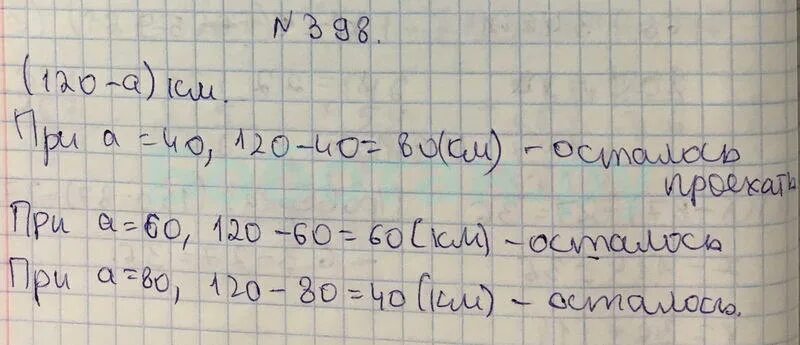 №398.
(120-а) км.
При а=40, 120-40=80(км) - осталось
проехать
При а=60, 120-60=60(км) - осталось
При а=80, 120-80=40(км) - осталось.